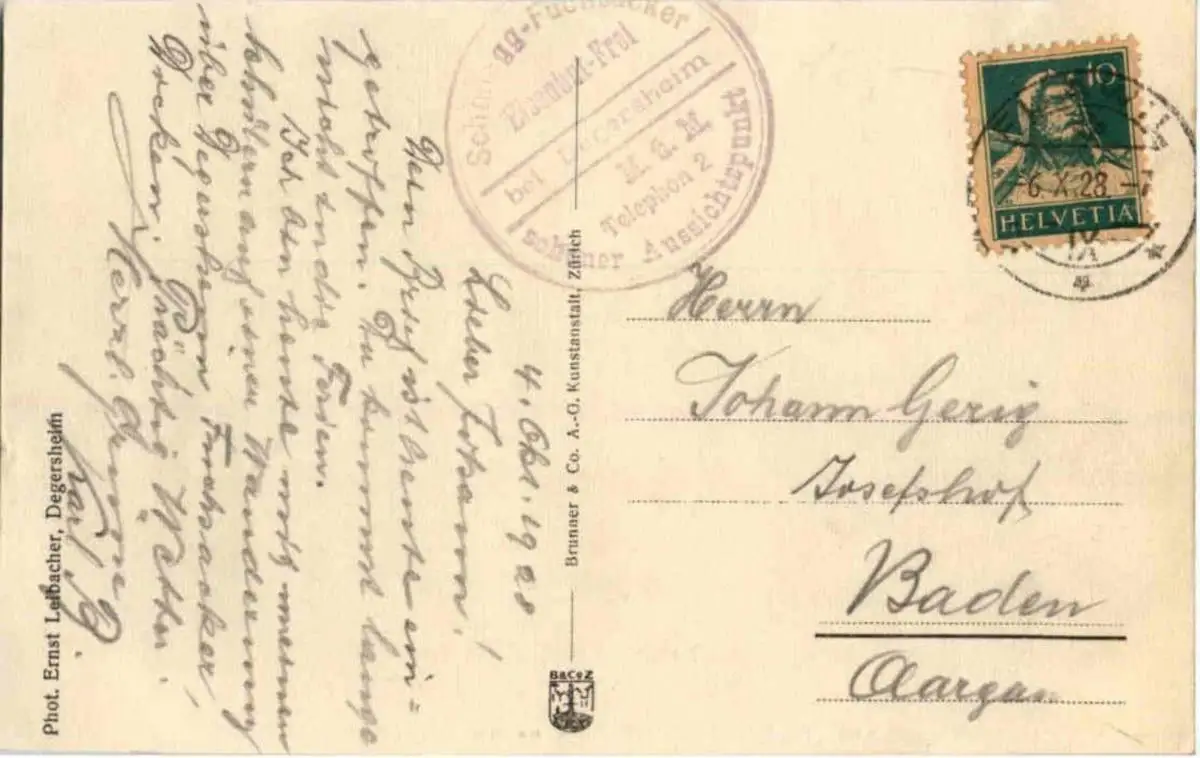 4. Okt. 1928
Lieber Johann!
Dein Brief ist heute ein=
getroffen. Du kommst lange
nicht in die Ferien.
Ich bin heute mit meinen
Schülern auf einer Wanderung
über Degersheim Fuchsacker,
Prächtig Wetter.
Herzl. Grüsse
Karl G.
Phot. Ernst Leibacher, Degersheim
Brunner & Co. A.-G. Kunstanstalt, Zürich
B&CoZ
gg-Fuchsacker
bei Degersheim
M. ü. M
Telephon 2
schöner Aussichtspunkt
10
HELVETIA
-6.X.28.-
IX
Herrn
Johann Gerig
Josefshof
Baden
Aargau